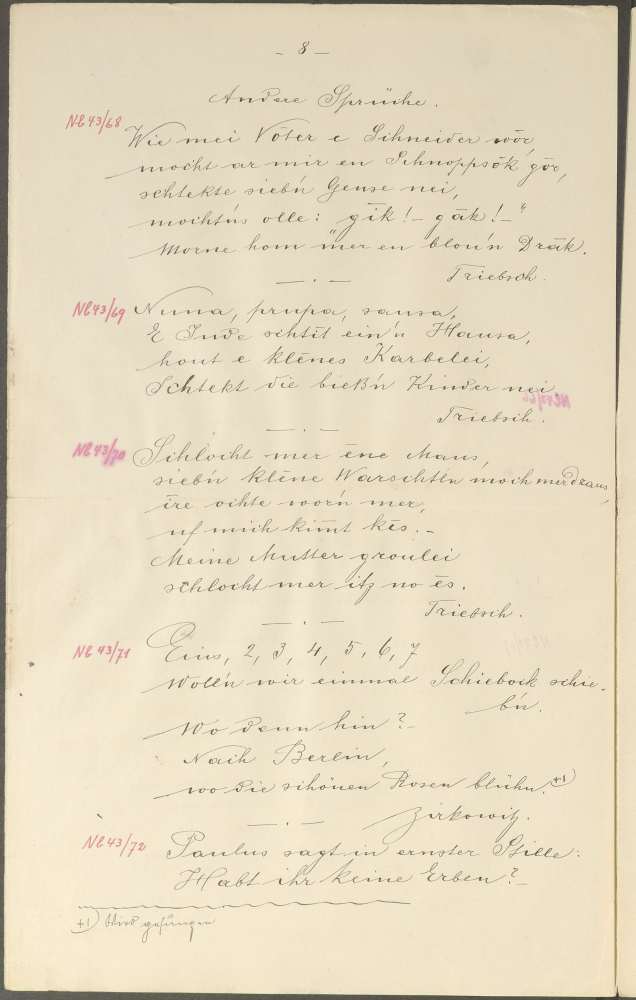 - 8 -
Andere Sprüche.
NB 43/68
Wie mei Voter e Schneider wōr,
mocht ar mir en Schnoppsōk gōr,
schtekte siebn Gense nei,
mochtńs olle: "gīk! - gāk! -"
Morne hom mer en blou'n Drāk.
Triebsch.
NB 43/69
Nuna, prupa, sausa,
E Jude schtīt ein'n Hausa,
hout e klēnes Karbelei,
Schtekt die bießń Kinder nei.
Triebsch.
NB 43/70
Schlocht mer ēne Maus,
siebń klēne Warschtĺn moch mer draus,
īre ochte worń mer,
uf mich kimmt kēs. -
Meine Mutter groulei
schlocht mer itz no ēs.
Triebsch.
NB 43/71
Eins, 2, 3, 4, 5, 6, 7
Wolln wir einmal Schiebock schie-
bń.
Wo denn hin? -
Nach Berlin,
wo die schönen Rosen blühn. +1)
Zirkowitz.
NB 43/72
Paulus sagt in ernster Stille:
Habt ihr keine Erben? -
+1) Wird gesungen